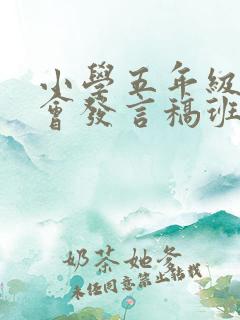 小學五年級
會發言稿班
奶茶她爹
未经同意禁止转载